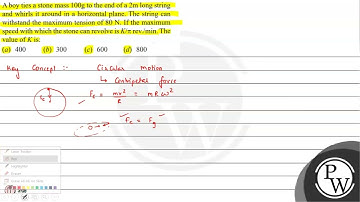 A boy ties a stone mass 100g to the end of a 2m long string
and whirls it around in a horizontal plane. The string can
withstand the maximum tension of 80 N. If the maximum
speed with which the stone can revolve is K/π rev./min. The
value of K is:
(a) 400 (b) 300 (c) 600 (d) 800
Key Concept :- Circular motion
↳ Centripetal force
Fc = mv²/R = mRω²
Fc = Fg
PW